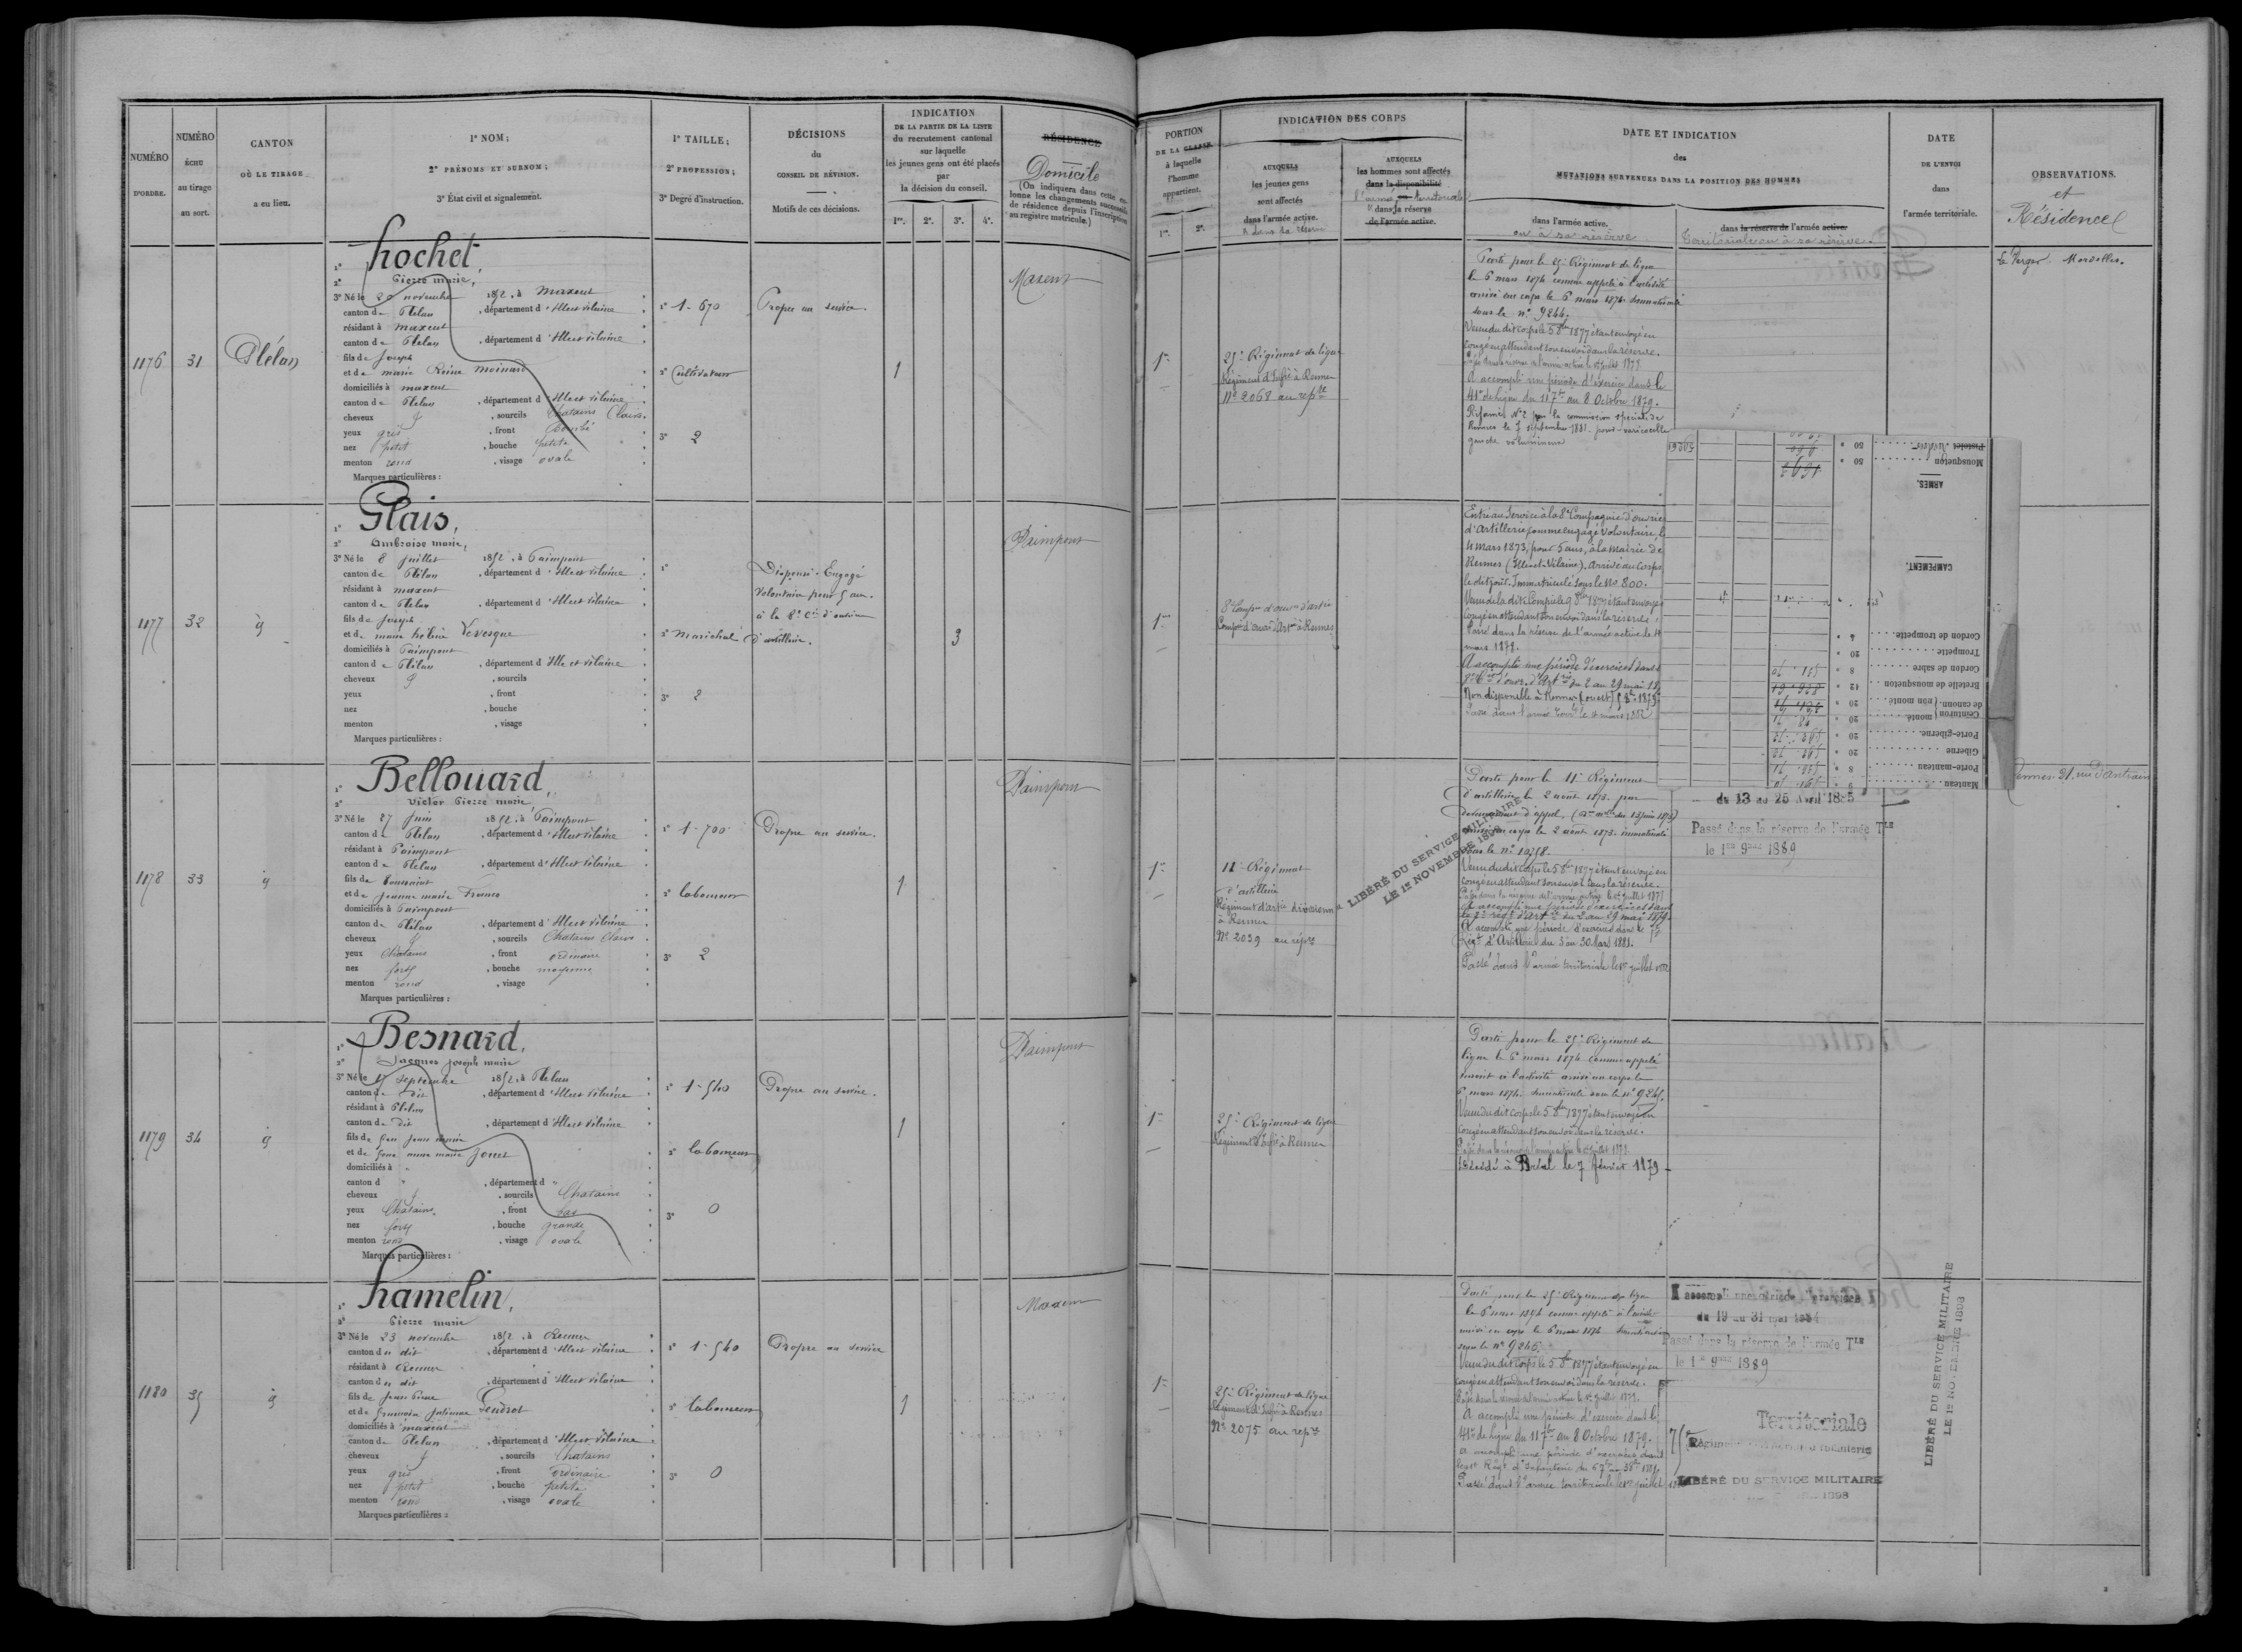 NUMÉRO
D'ORDRE.
NUMÉRO
ÉCHU
au tirage
au sort.
CANTON
OÙ LE TIRAGE
a eu lieu.
1° NOM;
2° PRÉNOMS ET SURNOM;
3° État civil et signalement.
1° TAILLE;
2° PROFESSION;
3° Degré d'instruction.
DÉCISIONS
du
CONSEIL DE RÉVISION.
Motifs de ces décisions.
INDICATION
DE LA PARTIE DE LA LISTE
du recrutement cantonal
sur laquelle
les jeunes gens ont été placés
par
la décision du conseil.
1re. 2e. 3e. 4e.
RÉSIDENCE
Domicile
(On indiquera dans cette co-
lonne les changements successifs
de résidence depuis l'inscription
au registre matricule.)
1176
31
Plélan
1° hochet,
2° Pierre marie,
3° Né le 20 novembre 1852, à Maxent
canton de Plélan, département d'Ille et vilaine
résidant à maxent
canton de Plelan, département d'Ille et vilaine
fils de Joseph
et de marie Reine moinard
domiciliés à maxent
canton de Plelan, département d'Ille et vilaine
cheveux, sourcils Chatains Clairs
yeux gris, front bombé
nez petit, bouche petite
menton rond, visage ovale
Marques particulières :
1° 1-670
2° Cultivateur
3° 2
Propre au service
1
Maxent
1177
32
1° Glais,
2° Ambroise marie,
3° Né le 8 Juillet 1852, à Paimpont
canton de Plélan, département d'Ille et vilaine
résidant à maxent
canton de Plelan, département d'Ille et vilaine
fils de Joseph
et de marie hélène Levesque
domiciliés à Paimpont
canton de Plélan, département d'Ille et vilaine
cheveux, sourcils
yeux, front
nez, bouche
menton, visage
Marques particulières :
1°
2° maréchal
3° 2
Dispensé - Engagé
Volontaire pour 5 ans.
à la 8e Cie d'ouvriers
d'artillerie.
3
Paimpont
1178
33
1° Bellouard,
2° Victor Pierre marie,
3° Né le 27 Juin 1852, à Paimpont
canton de Plelan, département d'Ille et vilaine
résidant à Paimpont
canton de Plelan, département d'Ille et vilaine
fils de Toussaint
et de Jeanne marie
domiciliés à Paimpont
canton de Plélan, département d'Ille et vilaine
cheveux, sourcils Chatains Clairs
yeux Chatains, front ordinaire
nez fort, bouche moyenne
menton rond, visage
Marques particulières :
1° 1-700
2° laboureur
3° 2
Propre au service.
1
Paimpont
1179
34
1° Besnard,
2° Jacques Joseph marie
3° Né le septembre 1852, à Plelan
canton de Dit, département d'Ille et vilaine
résidant à Plélan
canton de Dit, département d'Ille et vilaine
fils de feu Jean marie
et de feue anne marie Jouet
domiciliés à "
canton d ", département d "
cheveux, sourcils Chatains
yeux Chatains, front bas
nez fort, bouche grande
menton rond, visage ovale
Marques particulières :
1° 1-540
2° laboureur
3° 0
Propre au service.
1
Paimpont
1180
35
1° hamelin,
2° Pierre marie
3° Né le 23 novembre 1852, à Rennes
canton du dit, département d'Ille et vilaine
résidant à Rennes
canton du dit, département d'Ille et vilaine
fils de Jean Pierre
et de Julienne Gendrot
domiciliés à maxent
canton de Plelan, département d'Ille et vilaine
cheveux, sourcils Chatains
yeux gris, front ordinaire
nez petit, bouche petite
menton rond, visage ovale
Marques particulières :
1° 1-540
2° laboureur
3° 0
Propre au service
1
Maxent
PORTION
DE LA CLASSE
à laquelle
l'homme
appartient.
1re. 2e.
INDICATION DES CORPS
AUXQUELS
les jeunes gens
sont affectés
dans l'armée active.
AUXQUELS
les hommes sont affectés
dans la disponibilité
l'armée territoriale
dans la réserve
de l'armée active.
DATE ET INDICATION
des
MUTATIONS SURVENUES DANS LA POSITION DES HOMMES
dans l'armée active.
ou à sa réserve
dans la réserve de l'armée active.
Territoriale ou à sa réserve.
DATE
DE L'ENVOI
dans
l'armée territoriale.
OBSERVATIONS.
et
Résidence
1re
25e Régiment de ligne
Régiment d'Infie à Rennes
No 2068 au repre
Parti pour le 25e Régiment de ligne
le 6 mars 1874 comme appelé à l'activité
arrivé au corps le 6 mars 1874 Immatriculé
sous le no 9244.
Venu du dit corps le 5 8bre 1877 étant envoyé en
congé en attendant son envoi dans la réserve.
A accompli une période d'exercice dans le
41e de Ligne du 11 7bre au 8 Octobre 1879.
Réformé No 2 par la commission spéciale de
Rennes le 7 septembre 1881. pour varicocèle
gauche volumineux
Le Verger. Mordelles.
1re
8e Compie d'ouvrs d'artie
Compie d'ouvrs d'Artie à Rennes
Entré au Service à la 8e Compagnie d'ouvrie
d'Artillerie comme engagé volontaire, le
4 mars 1873, pour 5 ans, à la mairie de
Rennes (Ille et Vilaine). Arrivé au Corps
le dit jour. Immatriculé sous le No 800.
Venu de la dite Compie le 9 8bre 1877 étant envoyé
congé en attendant son envoi dans la réserve.
Passé dans la réserve de l'armée active le 4
mars 1878.
A accompli une période d'exercices dans
du 2 au 29 mai 18
Non disponible à Rennes (ouest) 1879
Passé dans l'armée Terrle le 4 mars 1882
Pistolet révolver 50
Mousqueton 50
ARMES.
CAMPEMENT.
Cordon de trompette
Trompette 20
Cordon de sabre 8
Bretelle de mousqueton 12
Ceinturon de canonn. non monté 20
monté 20
Porte-giberne 20
Giberne 20
Porte-manteau 8
Manteau 9
1re
11e Régiment
d'artillerie
Régiment d'artie divisionn
à Rennes
No 2039 au répre
LIBÉRÉ DU SERVICE MILITAIRE
LE 1er NOVEMBRE 1898
Parti pour le 11e Régiment
d'artillerie le 2 août 1873. par
devancement d'appel,
arrivé au corps le 2 août 1873. immatriculé
sous le no
Venu du dit corps le 5 8bre 1877 étant envoyé en
congé en attendant son envoi dans la réserve.
A accompli une période d'exercices dans
le 7e régt d'Artie du 2 au 29 mai 1879.
A accompli une période d'exercices dans le
Régt d'Artillerie du 3 au 30 Mars 1881.
Passé dans l'armée territoriale le 1er juillet 1882
du 13 au 25 Avril 1885
Passé dans la réserve de l'armée Tle
le 1er 9bre 1889
Rennes 31, rue d'Antrain
1re
25e Régiment de ligne
Régiment d'Infie à Rennes
Parti pour le 25e Régiment de
ligne le 6 mars 1874 comme appelé
arrivé au corps le
6 mars 1874. Immatriculé sous le no
Venu du dit corps le 5 8bre 1877 étant envoyé en
congé en attendant son envoi dans la réserve.
Décédé à Bréal le 7 février 1879
1re
25e Régiment de ligne
Régiment d'Infie à Rennes
No 2075 au repre
Parti pour le 25e Régiment de ligne
le 6 mars 1874 comme appelé à l'activité
arrivé au corps le 6 mars 1874 Immatriculé
sous le no 9246.
Venu du dit corps le 5 8bre 1877 étant envoyé en
congé en attendant son envoi dans la réserve.
A accompli une période d'exercice dans le
41e de Ligne du 11 7bre au 8 Octobre 1879.
A accompli une période d'exercices dans
Passé dans l'armée territoriale le 1er juillet
A accompli une période d'exercices
du 19 au 31 mai 1884
Passé dans la réserve de l'armée Tle
le 1er 9bre 1889
Territoriale
75e
Régiment d'Infanterie
LIBÉRÉ DU SERVICE MILITAIRE
1898
LIBÉRÉ DU SERVICE MILITAIRE
LE 1er NOVEMBRE 1898